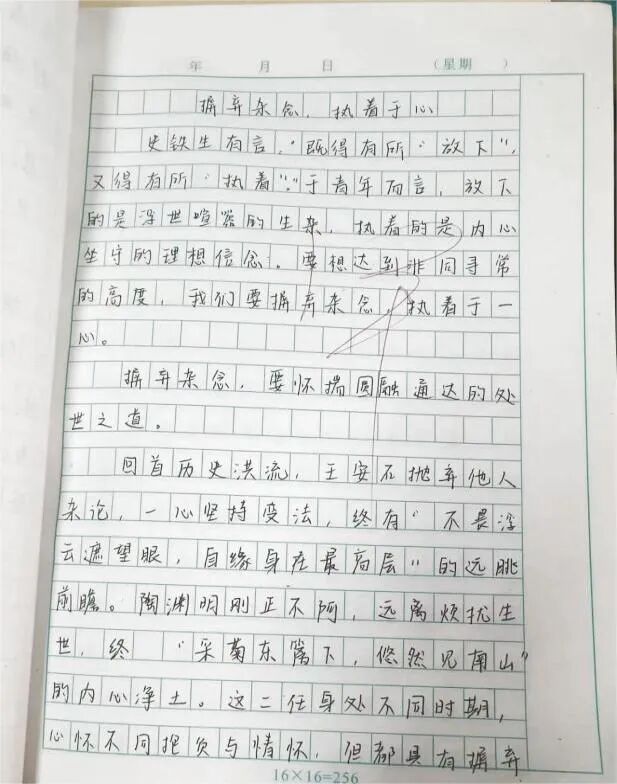 年 月 日 （星期 ）
摒弃杂念，执着于心
史铁生有言，“既得有所‘放下’，
又得有所‘执着’”。于青年而言，放下
的是浮世喧嚣的生杂，执着的是内心
坐守的理想信念。要想达到非同寻常
的高度，我们要摒弃杂念，执着于一
心。
摒弃杂念，要怀揣圆融通达的处
世之道。
回首历史洪流，王安石抛弃他人
杂论，一心坚持变法，终有“不畏浮
云遮望眼，自缘身在最高层”的远眺
前瞻。陶渊明刚正不阿，远离烦扰生
世，终“采菊东篱下，悠然见南山”
的内心净土。这二任身处不同时期，
心怀不同抱负与情怀，但都具有摒弃
16×16=256